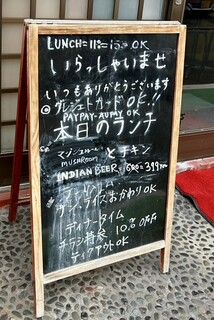 LUNCH=11:=15=OK
いらっしゃいませ
いつもありがとうございます
クレジットカードOK!!
PAYPAY-AUPAY OK
本日のランチ
マッシュルーム と チキン
MUSHROOM
INDIAN BEER 600=399
ナン、ライスおかわりOK
ディナータイム
チラシ特来 10% OFF
テイクアウトOK